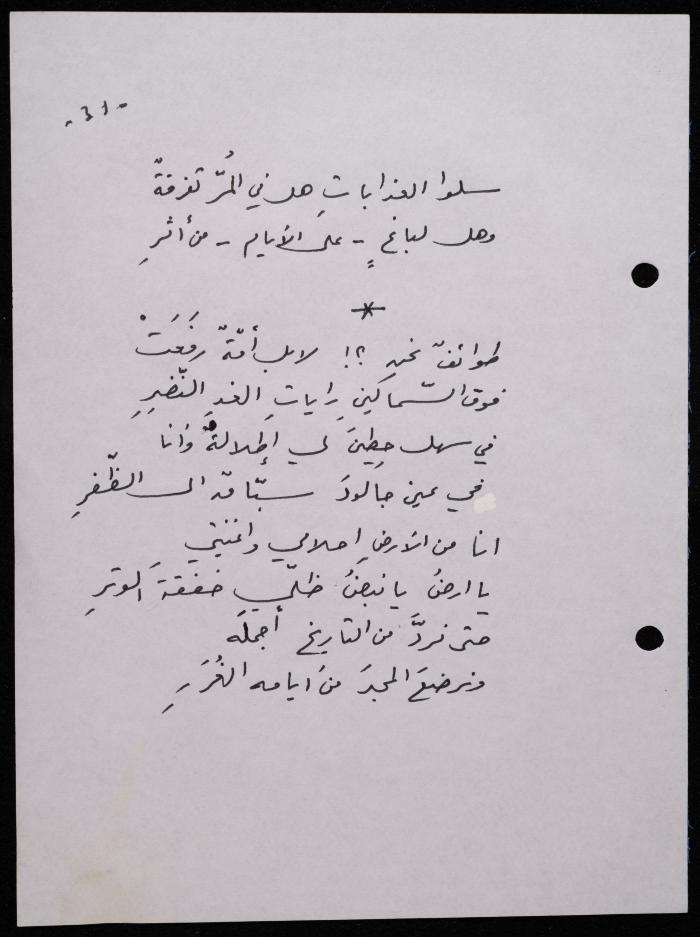 - ٤١ -
سلوا العذابات هل في المُرّ تفرقةٌ
وهل لباغٍ - على الأيام - من أثرِ
*
طوائفٌ نحن ؟! لا بل أمّةٌ رفَعَتْ
فوق السّماكينِ راياتِ الغدِ النّضِرِ
في سهل حطينَ لي إطلالةٌ وأنا
في عين جالودَ سبّاقٌ الى الظّفرِ
انا من الأرضِ احلامي واغنيتي
يا ارضُ يا نبضُ ظلّي خفقةَ الوترِ
حتى نردَّ من التاريخ أجملَه
ونرضعَ المجدَ من ايامه الغُرَرِ